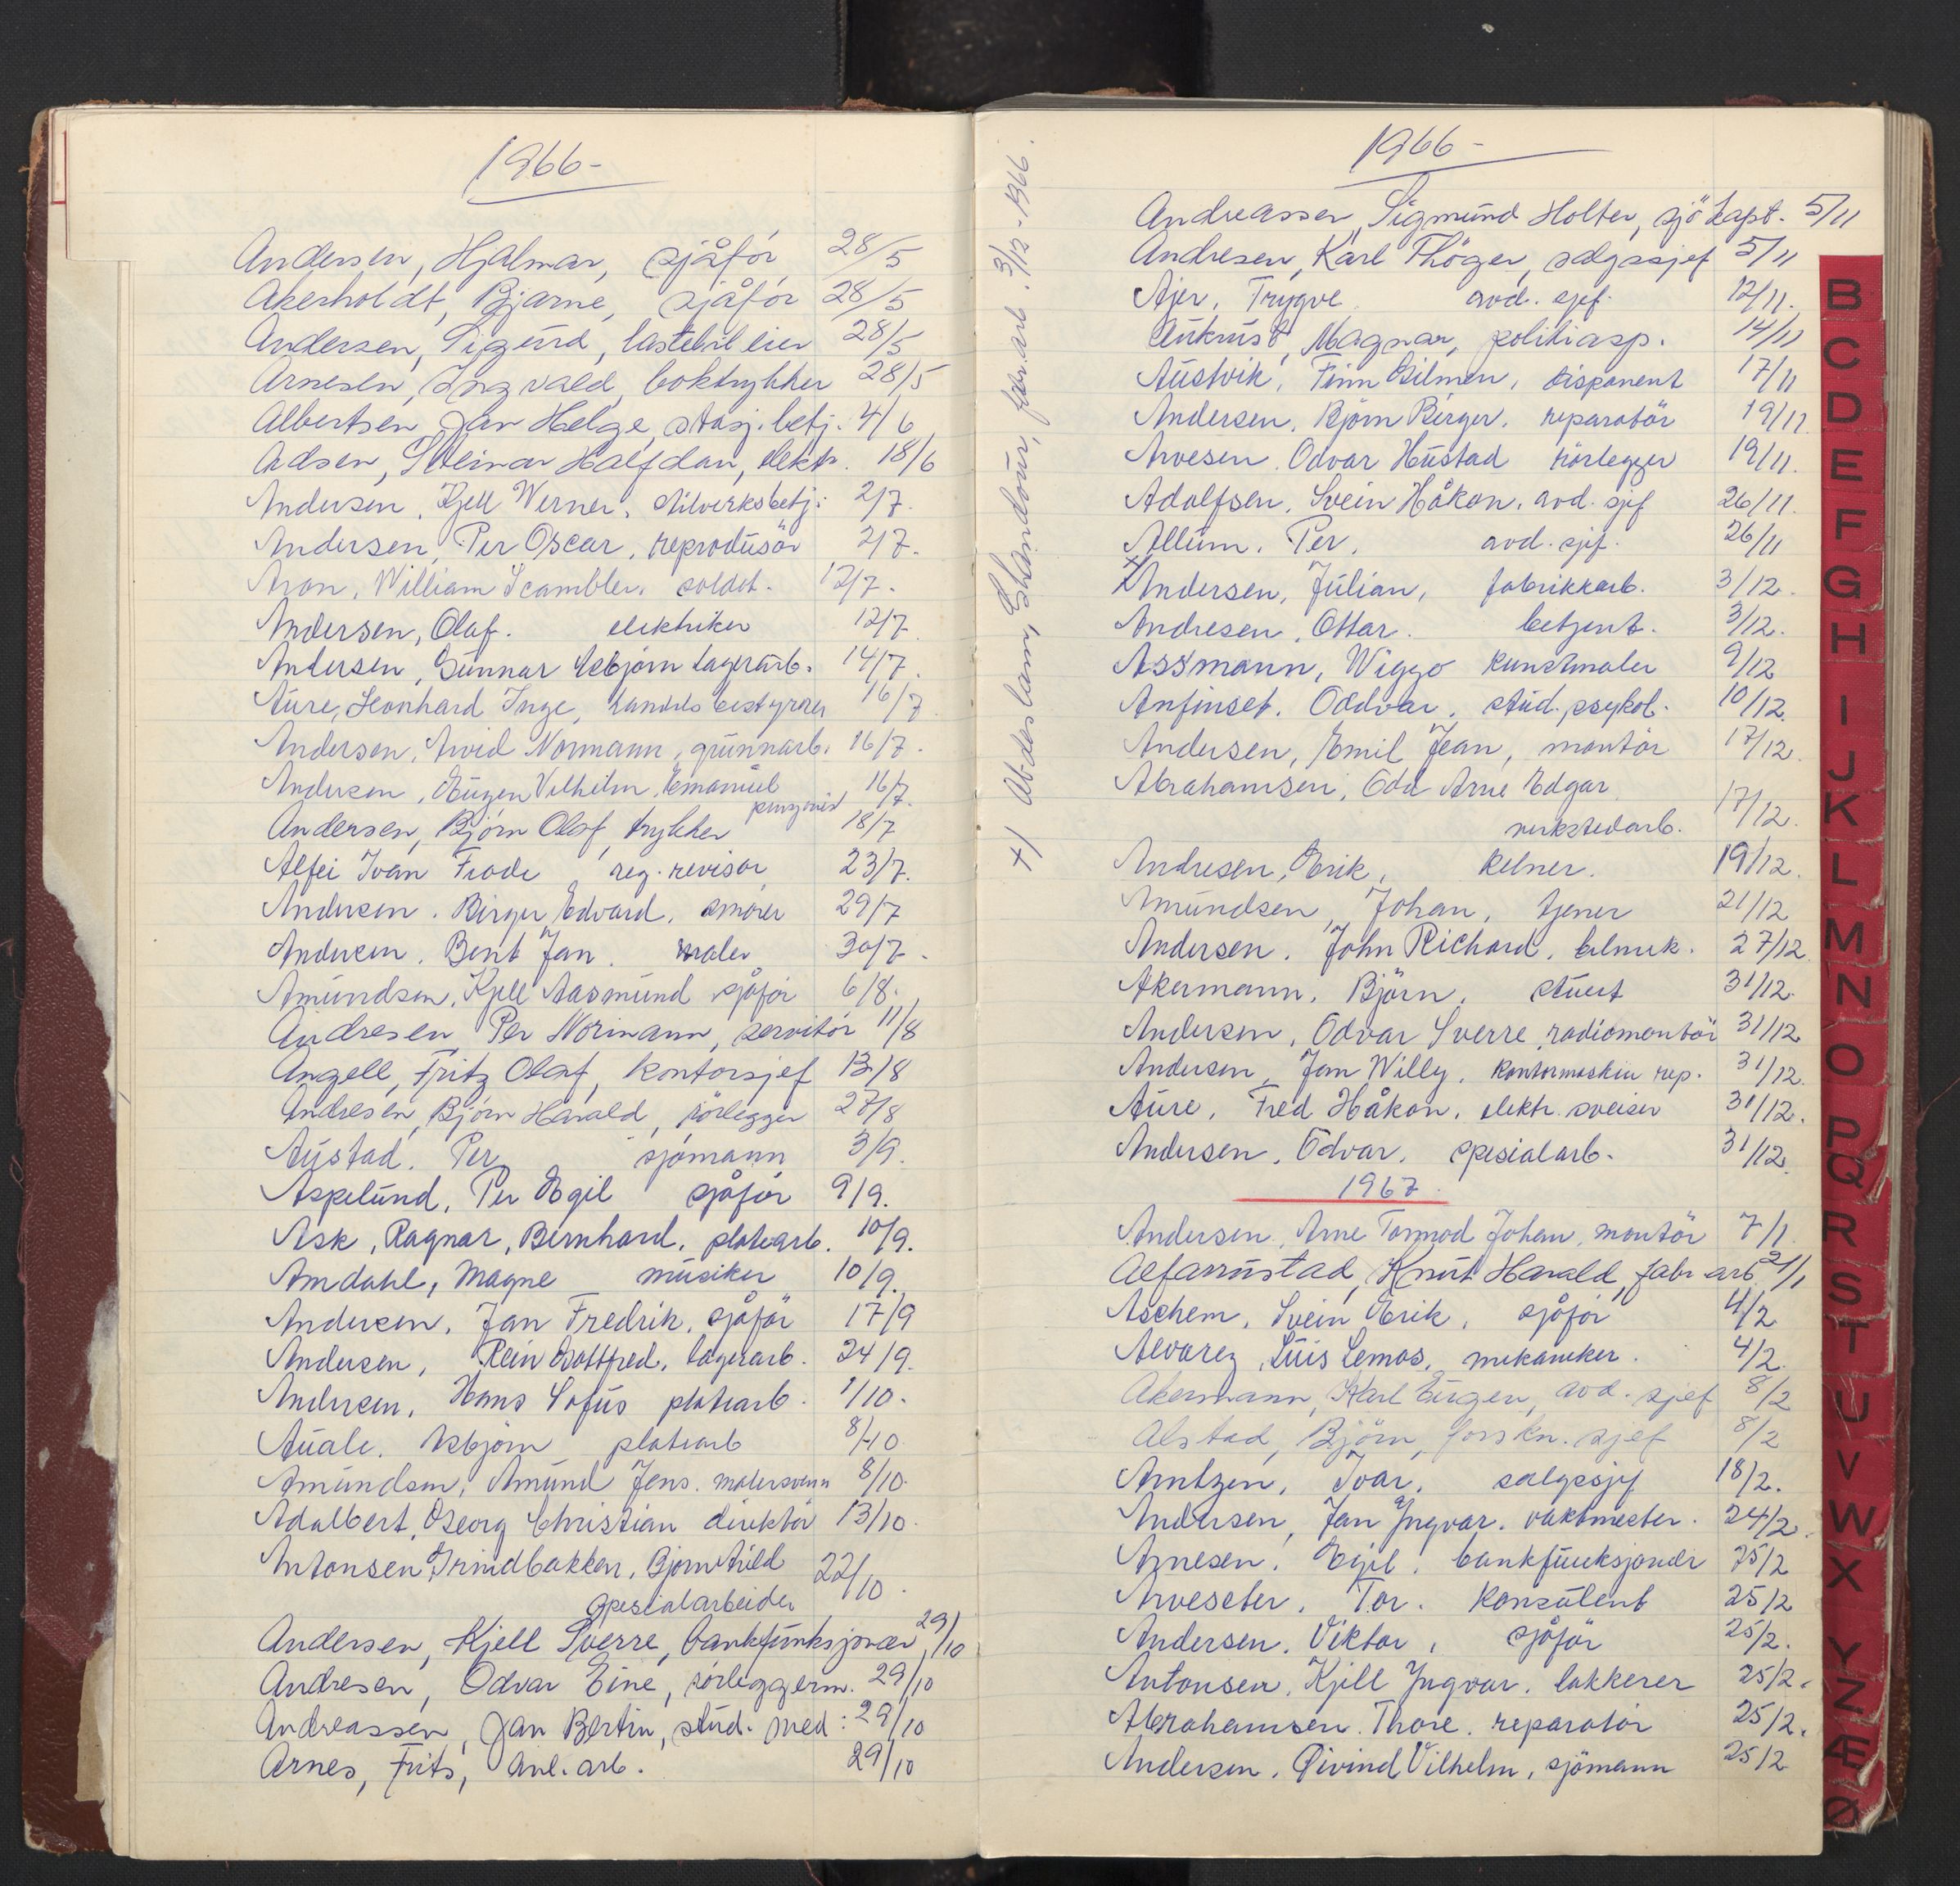 1966-
Andersen, Hjalmar, sjåfør 28/5
Akerholdt, Bjarne, sjåfør 28/5
Andersen, Sigurd, lastebileier 28/5
Arnesen, Ingvald, boktrykker 28/5
Albertsen, Jan Helge, stasj.betj. 4/6
Adsen, Steinar Halfdan, elektr. 18/6
Andersen, Kjell Werner, silverksbetj: 2/7.
Andersen, Per Oscar, reprodusör 2/7.
Aron, William Scambler, soldat. 12/7.
Andersen, Olaf. elektriker 12/7
Andersen, Gunnar Asbjørn lagerarb. 14/7
Aure, Leonhard Inge, handelsbestyrer 16/7
Andersen, Arvid Normann, grunnarb. 16/7.
Andersen, Eugen Vilhelm Emanuel pensjonist 16/7.
Andersen, Bjørn Olaf, trykker 18/7
Alfei Ivan Frode, reg. revisor 23/7.
Andersen. Birger Edvard, smører 29/7
Andersen. Bent Jan. maler 30/7.
Amundsen, Kjell Aasmund sjåför 6/8.
Andresen Per Normann, servitör 11/8
Angell, Fritz Olaf, kontorsjef 13/8
Andresen, Bjørn Harald, rörlegger 27/8
Austad. Per sjømann 3/9.
Aspelund, Per Egil sjåfør 9/9.
Ask, Ragnar, Bernhard. platearb. 10/9.
Amdahl, Magne musiker 10/9.
Andersen. Jan Fredrik. sjåför 17/9
Andersen, Rein Gottfred, lagerarb. 24/9.
Andersen, Hans Sofus platearb. 1/10.
Auale. Asbjørn platearb 8/10.
Amundsen, Amund Jens. malersvenn 8/10.
Adalbert, Georg Christian direktör 13/10.
Antonsen Grindbakken, Bjørn Arild 22/10.
spesialarbeider
Andersen, Kjell Sverre, bankfunksjonær 29/10
Andresen, Odvar Eine, rörleggerm. 29/10
Andreassen, Jan Bertin, stud. med: 29/10
Arnes, Frits, anl. arb. 29/10
+/ Abdeslam, Ghandour, fabr.arb. 3/12-1966.
1966-
Andreassen, Sigmund Holter, sjökapt. 5/11
Andresen, Karl Thöger, salgssjef 5/11
Ajer, Trygve. avd. sjef. 12/11.
Aukrust, Magnar, politiasp. 14/11
Austvik, Finn Hilmen, disponent 17/11
Andersen, Bjørn Birger. reparatör 19/11
Arvesen. Odvar Hustad rörlegger 19/11.
Adolfsen, Svein Håkon. avd. sjef 26/11.
Allum. Per. avd. sjef. 26/11
+ Andersen, Julian, fabrikkarb. 3/12.
Andresen, Ottar. betjent. 3/12.
Assmann, Wiggo kunstmaler 9/12
Anfinset. Oddvar. stud. psykol. 10/12.
Andersen, Emil Jean, montör 17/12.
Abrahamsen, Odd Arne Edgar
verkstedarb. 17/12.
Andresen, Erik, kelner. 19/12.
Amundsen, Johan, tjener 21/12
Andersen. John Richard, bilmek. 27/12
Akermann, Björn. stuert 31/12.
Andersen, Odvar Sverre, radiomontör 31/12
Andersen, Jan Willy. kontormaskin rep. 31/12.
Aure, Fred Håkon, elektr. sveiser 31/12.
Andersen, Odvar. spesialarb. 31/12.
1967.
Andersen, Arne Tormod Johan, montör 7/1
Alfarrustad, Knut Harald, fabr. arb. 21/1
Aschem, Svein Erik, sjåfør 4/2
Alvarez, Luis Lemos, mekaniker. 4/2
Akermann, Karl Eugen, avd. sjef 8/2
Alstad, Bjørn, forskn. sjef 8/2
Arntzen, Ivar. salgssjef 18/2.
Andersen, Jan Yngvar. vaktmester. 24/2.
Arnesen. Egil. bankfunksjonær 25/2
Arveseter. Tor. konsulent 25/2
Andersen. Viktor, sjåför 25/2.
Antonsen. Kjell Yngvar. lakkerer 25/2.
Abrahamsen. Thore. reparatör 25/2.
Andersen. Øivind Vilhelm, sjömann 25/2
B
C
D
E
F
G
H
I
J
K
L
M
N
O
P
Q
R
S
T
U
V
W
X
Y
Z
Æ
Ø